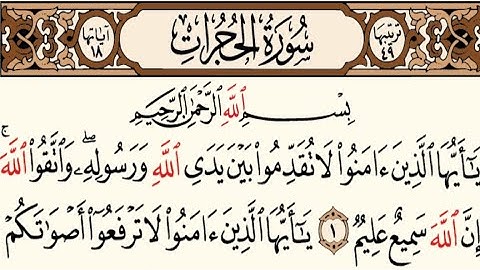 ترتيبها ٤٩ سُورَةُ الحُجُرَاتِ آياتها ١٨
بِسْمِ ٱللَّهِ ٱلرَّحْمَٰنِ ٱلرَّحِيمِ
يَٰٓأَيُّهَا ٱلَّذِينَ ءَامَنُوا۟ لَا تُقَدِّمُوا۟ بَيْنَ يَدَىِ ٱللَّهِ وَرَسُولِهِۦۖ وَٱتَّقُوا۟ ٱللَّهَۚ
إِنَّ ٱللَّهَ سَمِيعٌ عَلِيمٌ ١ يَٰٓأَيُّهَا ٱلَّذِينَ ءَامَنُوا۟ لَا تَرْفَعُوٓا۟ أَصْوَٰتَكُمْ